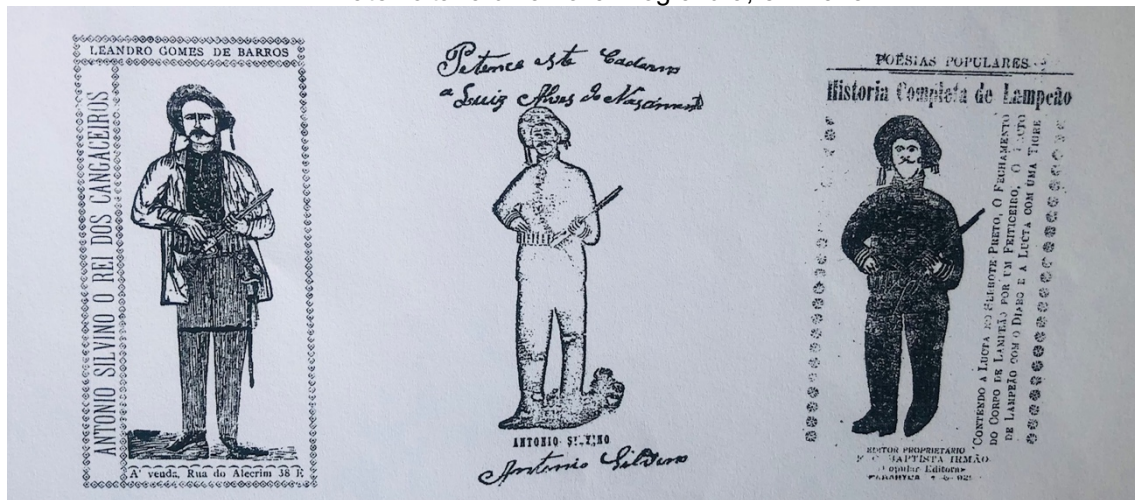 LEANDRO GOMES DE BARROS
ANTONIO SILVINO O REI DOS CANGACEIROS
A' venda, Rua do Alecrim 38 E
Petence este Caderno
a Luiz Alves do Nascimento
ANTONIO SILVINO
Antonio Silvino
POESIAS POPULARES
Historia Completa de Lampeão
CONTENDO A LUCTA NO SERROTE PRETO, O FECHAMENTO
DO CORPO DE LAMPEÃO POR UM FEITICEIRO, O LUCTO
DE LAMPEÃO COM O DIABO E A LUCTA COM UMA TIGRE
EDITOR PROPRIETARIO
F. C. BAPTISTA IRMÃO
Popular Editora